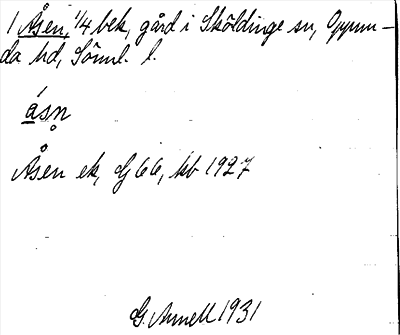 1 Åsen, 1/4 bek, gård i Sköldinge sn, Oppun-
da hd, Sörml. l.
ásn̥
Åsen ek, G 66, kb 1927
G. Arnell 1931